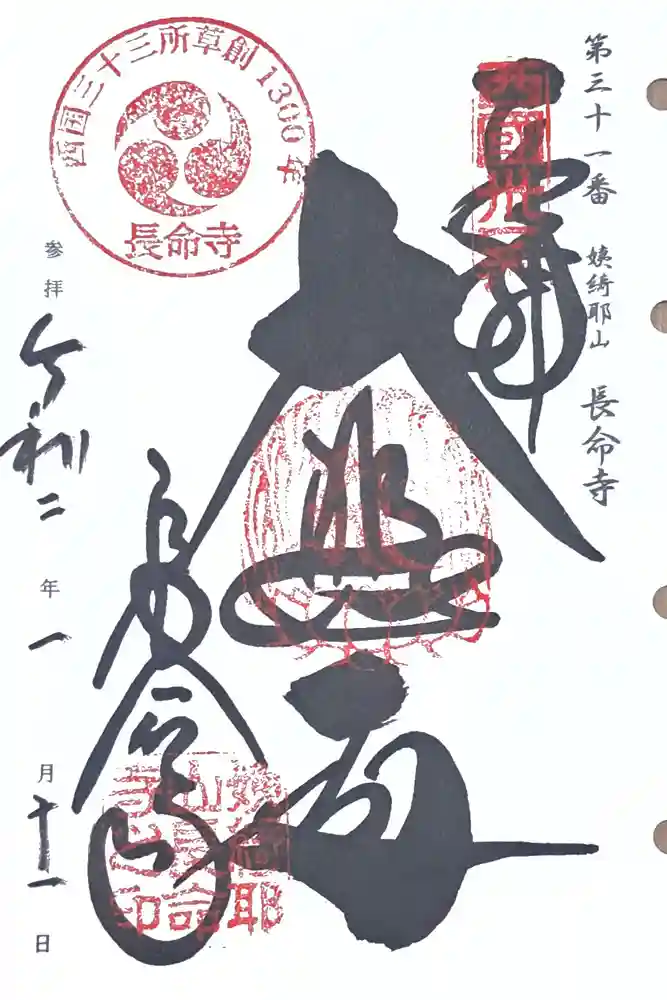 第三十一番 姨綺耶山 長命寺
西国三十三所草創1300年
長命寺
西国卅一番
奉拝
大悲殿
長命寺
姨綺耶
山長命
寺之印
参拝 令和二年一月十一日